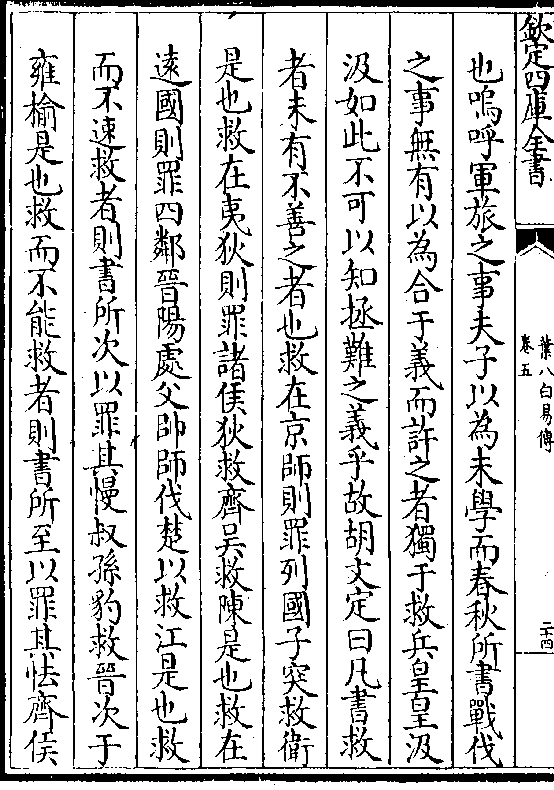 欽定四庫全書
葉八白易傳
卷五
二十四
也嗚呼軍旅之事夫子以為未學而春秋所書戰伐
之事無有以為合于義而許之者獨于救兵皇皇汲
汲如此不可以知拯難之義乎故胡文定曰凡書救
者未有不善之者也救在京師則罪列國子突救衛
是也救在夷狄則罪諸侯狄救齊吳救陳是也救在
逺國則罪四鄰晉陽處父帥師伐楚以救江是也救
而不速救者則書所次以罪其慢叔孫豹救晉次于
雍榆是也救而不能救者則書所至以罪其怯齊侯